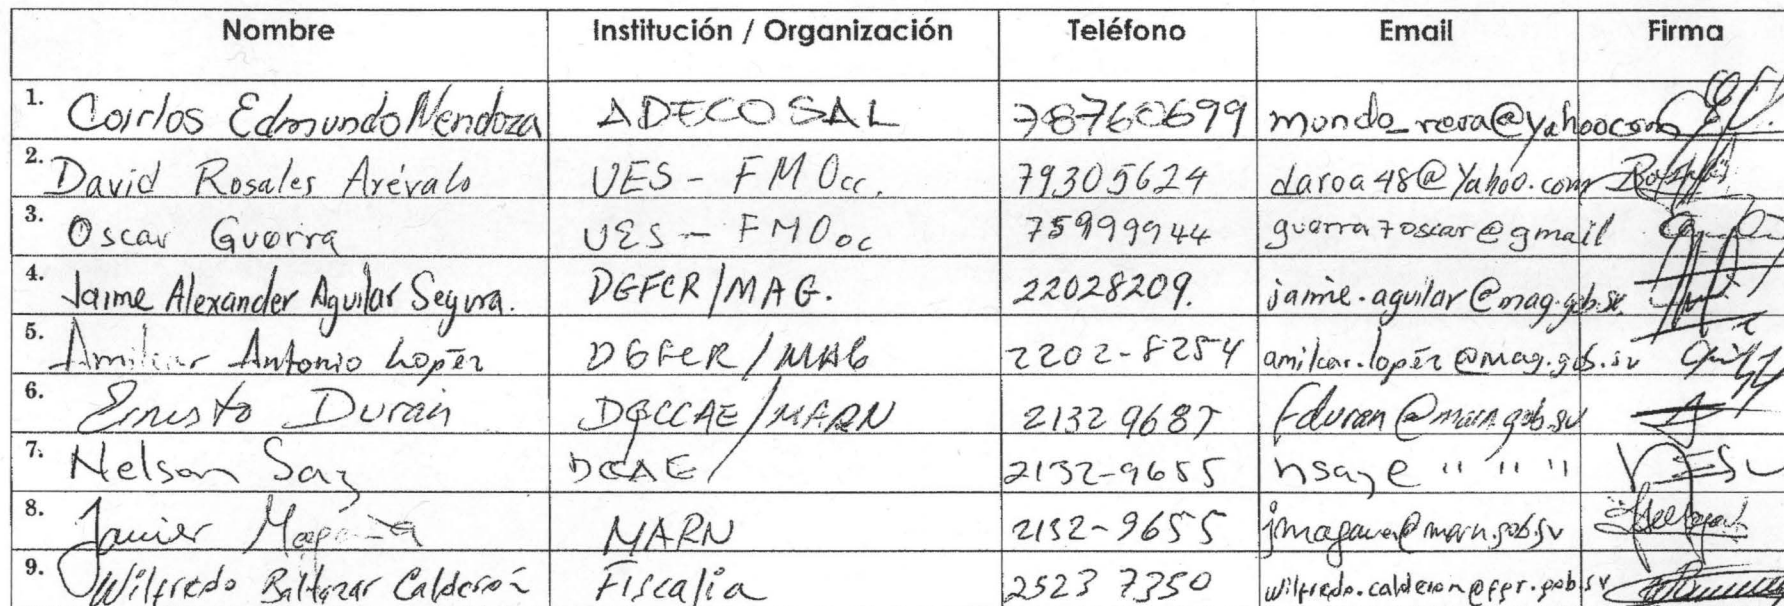 Nombre Institución / Organización Teléfono Email Firma
1. Carlos Edmundo Mendoza ADECOSAL 78760699 mundo_rera@yahoo.com
2. David Rosales Arévalo UES - FMOcc. 79305624 daroa48@Yahoo.com
3. Oscar Guerra UES - FMOoc 75999944 guerra7oscar@gmail
4. Jaime Alexander Aguilar Segura. DGFCR/MAG. 22028209. jaime.aguilar@mag.gob.sv
5. Amilcar Antonio Lopéz DGFCR/MAG 2202-8254 amilcar.lopéz@mag.gob.sv
6. Ernesto Durán DGCCAE/MARN 2132 9687 fduran@marn.gob.sv
7. Nelson Saz DCAE/ 2132-9655 nsaz@ " " "
8. Javier Magaña MARN 2132-9655 jmagana@marn.gob.sv
9. Wilfredo Baltazar Calderón Fiscalia 2523 7350 wilfredo.calderon@fgr.gob.sv